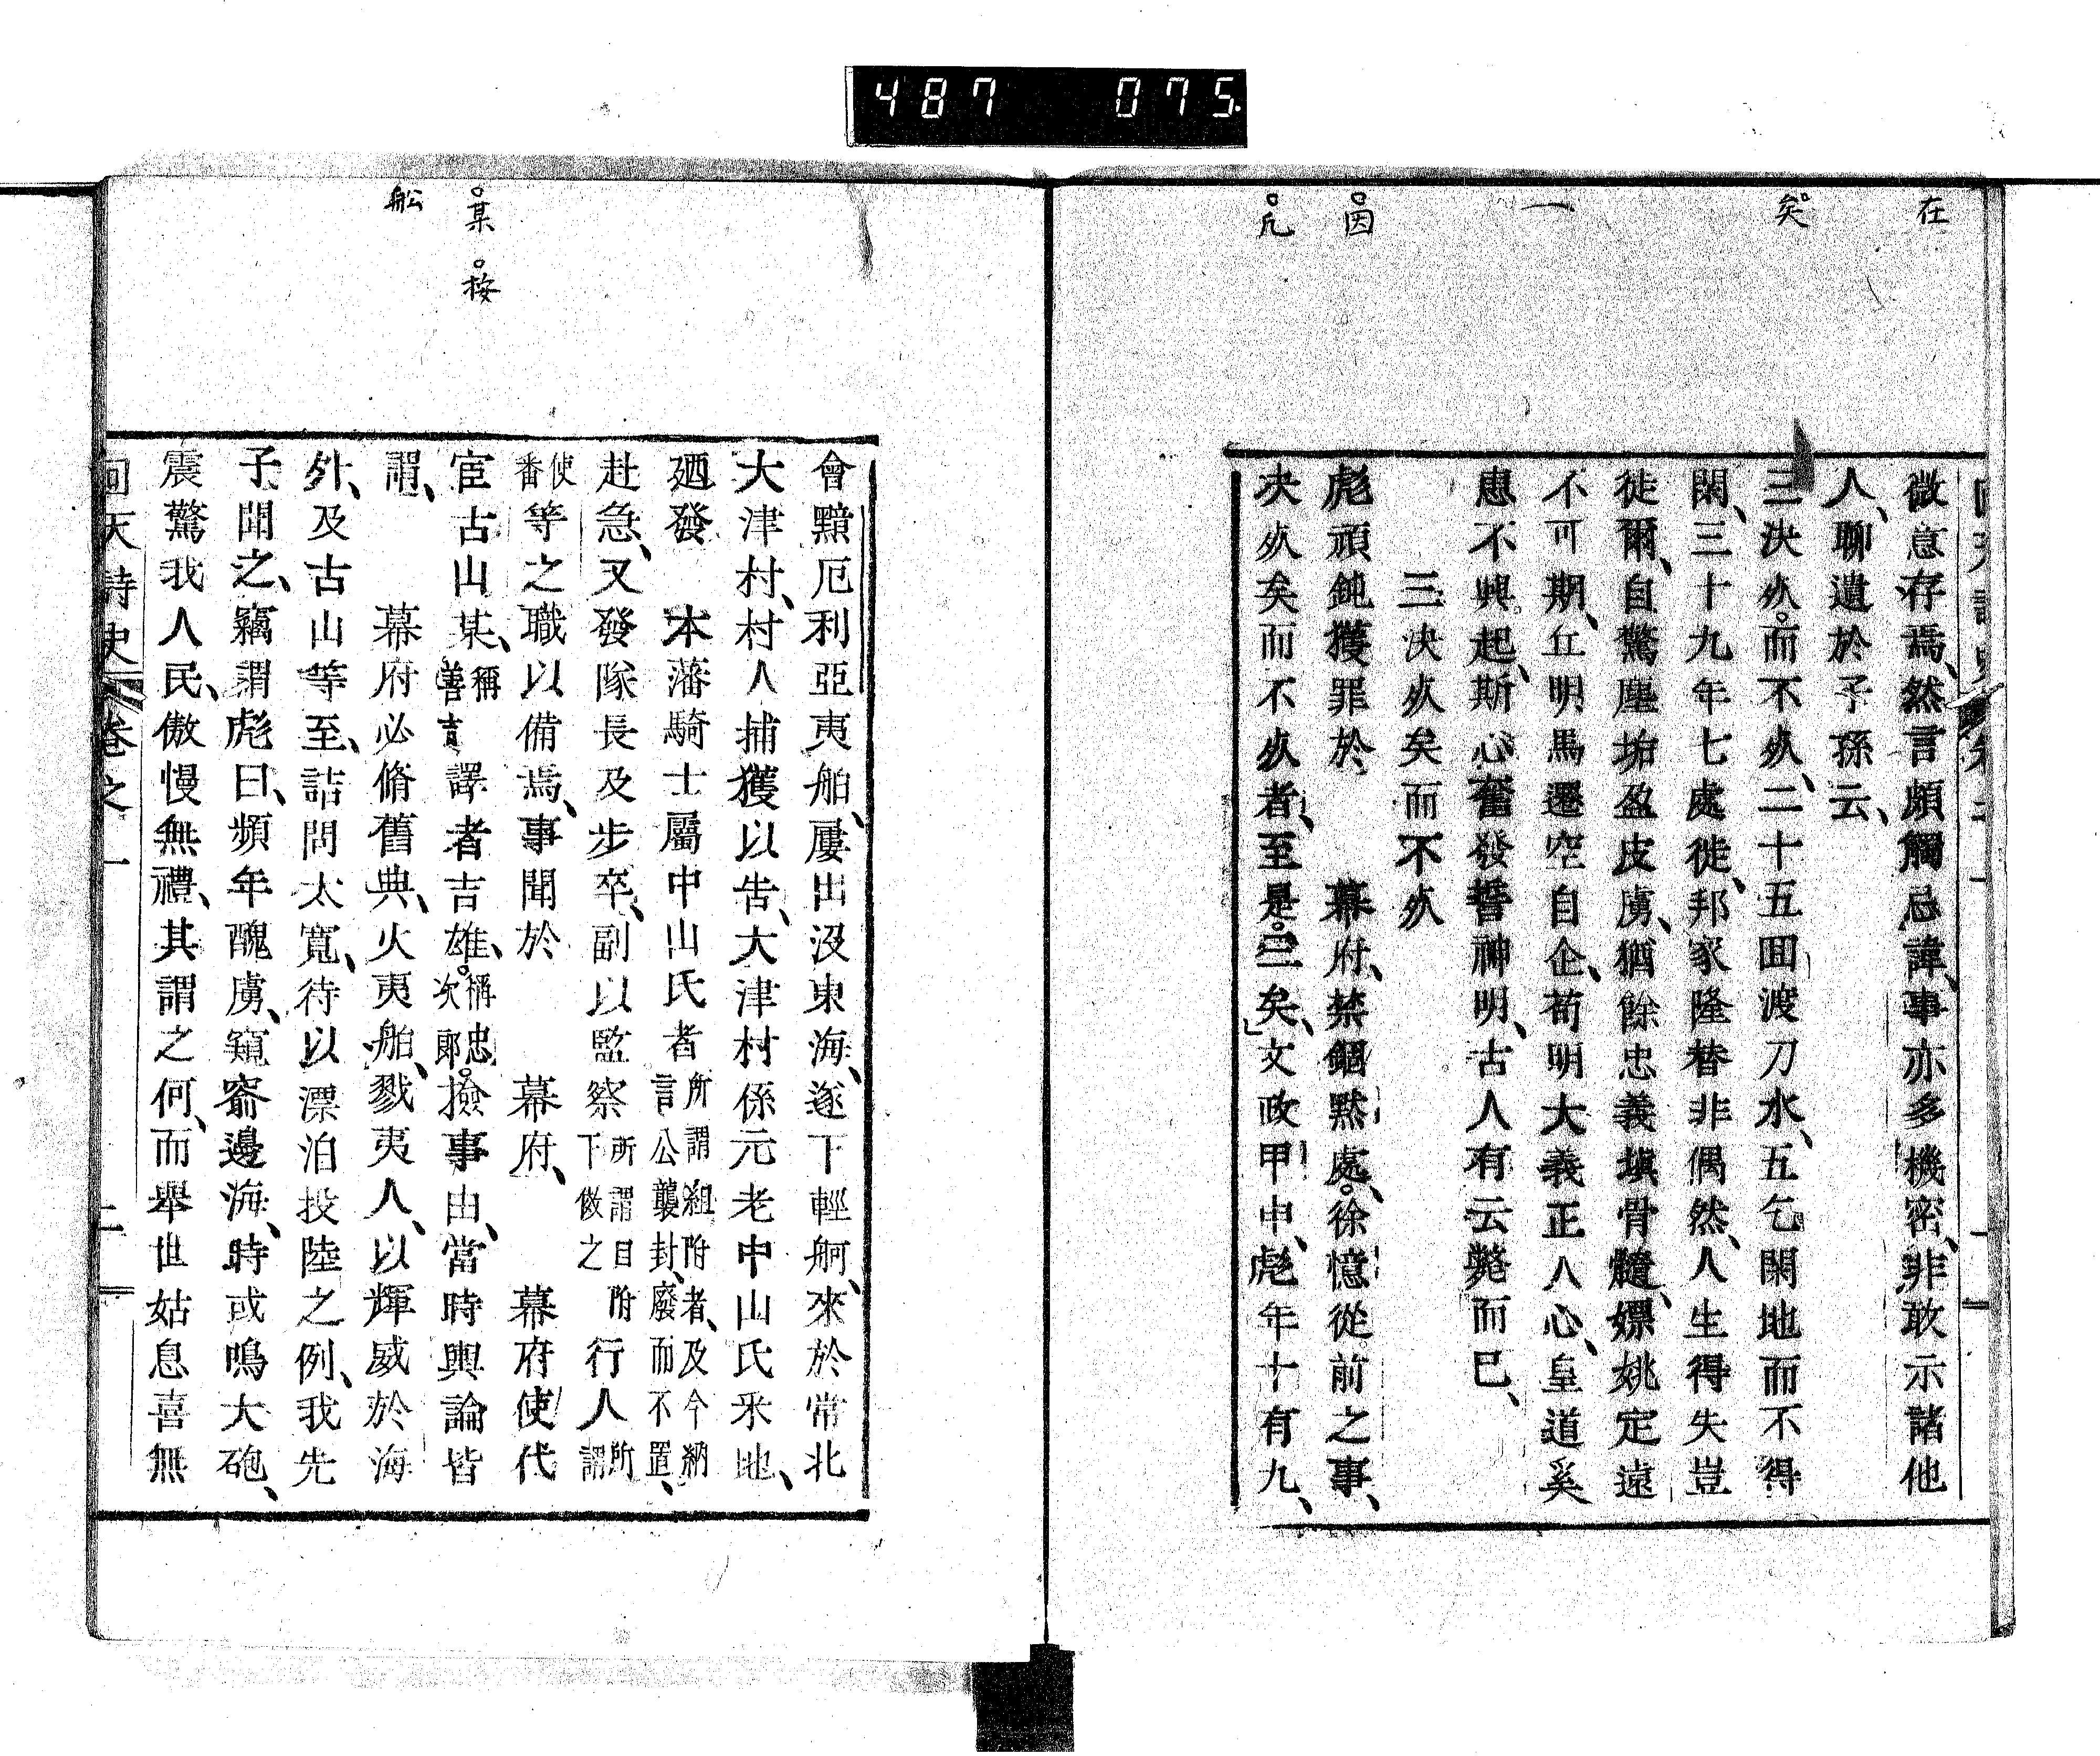 487 075
在
矣
一
因
凢
微意存焉、然言頗觸忌諱、事亦多機密、非敢示諸他
人、聊遺於子孫云、
三決㱠而不㱠、二十五囬渡刀水、五乞閑地而不得
閑、三十九年七處徙、邦家隆替非偶然、人生得失豈
徒爾、自驚塵垢盈皮膚、猶餘忠義塡骨髓、嫖姚定遠
不可期、丘明馬遷空自企、苟明大義正人心、皇道奚
患不興起、斯心奮發誓神明、古人有云斃而已、
三決㱠矣而不㱠
彪頑鈍獲罪於幕府、禁錮默處、徐憶從前之事、
決㱠矣而不㱠者、至是三矣、文政甲申、彪年十有九、
某 按
舩
會黯厄利亞夷舶、屢出沒東海、遂下輕舸、來於常北
大津村、村人捕獲以告、大津村係元老中山氏釆地、
廼發 本藩騎士屬中山氏者所謂組附者、及今納言公襲封、廢而不置、
赴急、又發隊長及步卒、副以監察所謂目附下倣之行人所謂
使番等之職以備焉、事聞於 幕府、 幕府使代
官古山某、稱善吉譯者吉雄、稱忠次郞撿事由、當時輿論皆
謂、 幕府必脩舊典、火夷舶、戮夷人、以輝威於海
外、及古山等至、詰問太寬、待以漂泊投陸之例、我先
子聞之、竊謂彪曰、頻年醜虜、窺窬邊海、時或鳴大砲、
震驚我人民、傲慢無禮、其謂之何、而舉世姑息喜無
回天詩史 卷之一 二